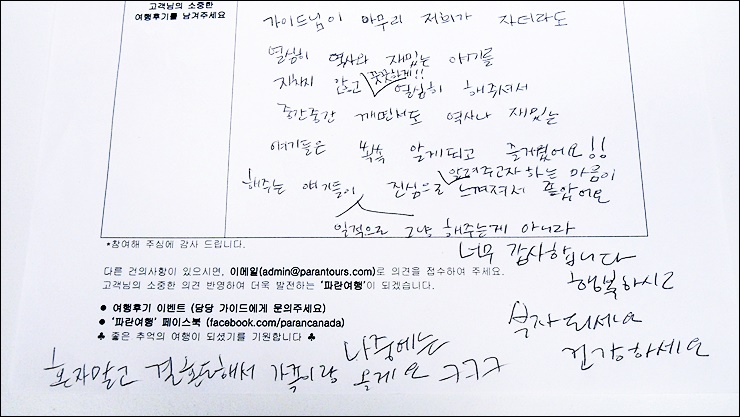 고객님의 소중한
여행후기를 남겨주세요
가이드님이 아무리 저희가 자더라도
열심히 역사와 재밌는 얘기를
지치지 않고 꿋꿋하게!! 열심히 해주셔서
중간중간 깨면서도 역사나 재밌는
얘기들은 쏙쏙 알게되고 즐거웠어요!!
해주는 얘기들이 진심으로 알려주고자 하는 마음이 느껴져서 좋았어요
일적으로 그냥 해주는게 아니라
*참여해 주심에 감사 드립니다.
너무 감사합니다
다른 건의사항이 있으시면, 이메일(admin@parantours.com)로 의견을 접수하여 주세요.
고객님의 소중한 의견 반영하여 더욱 발전하는 '파란여행'이 되겠습니다.
행복하시고
● 여행후기 이벤트 (담당 가이드에게 문의주세요)
● '파란여행' 페이스북 (facebook.com/parancanada)
부자되세요
♣ 좋은 추억의 여행이 되셨기를 기원합니다 ♣
건강하세요
나중에는
혼자말고 결혼해서 가족이랑 올게요 ㅋㅋㅋ